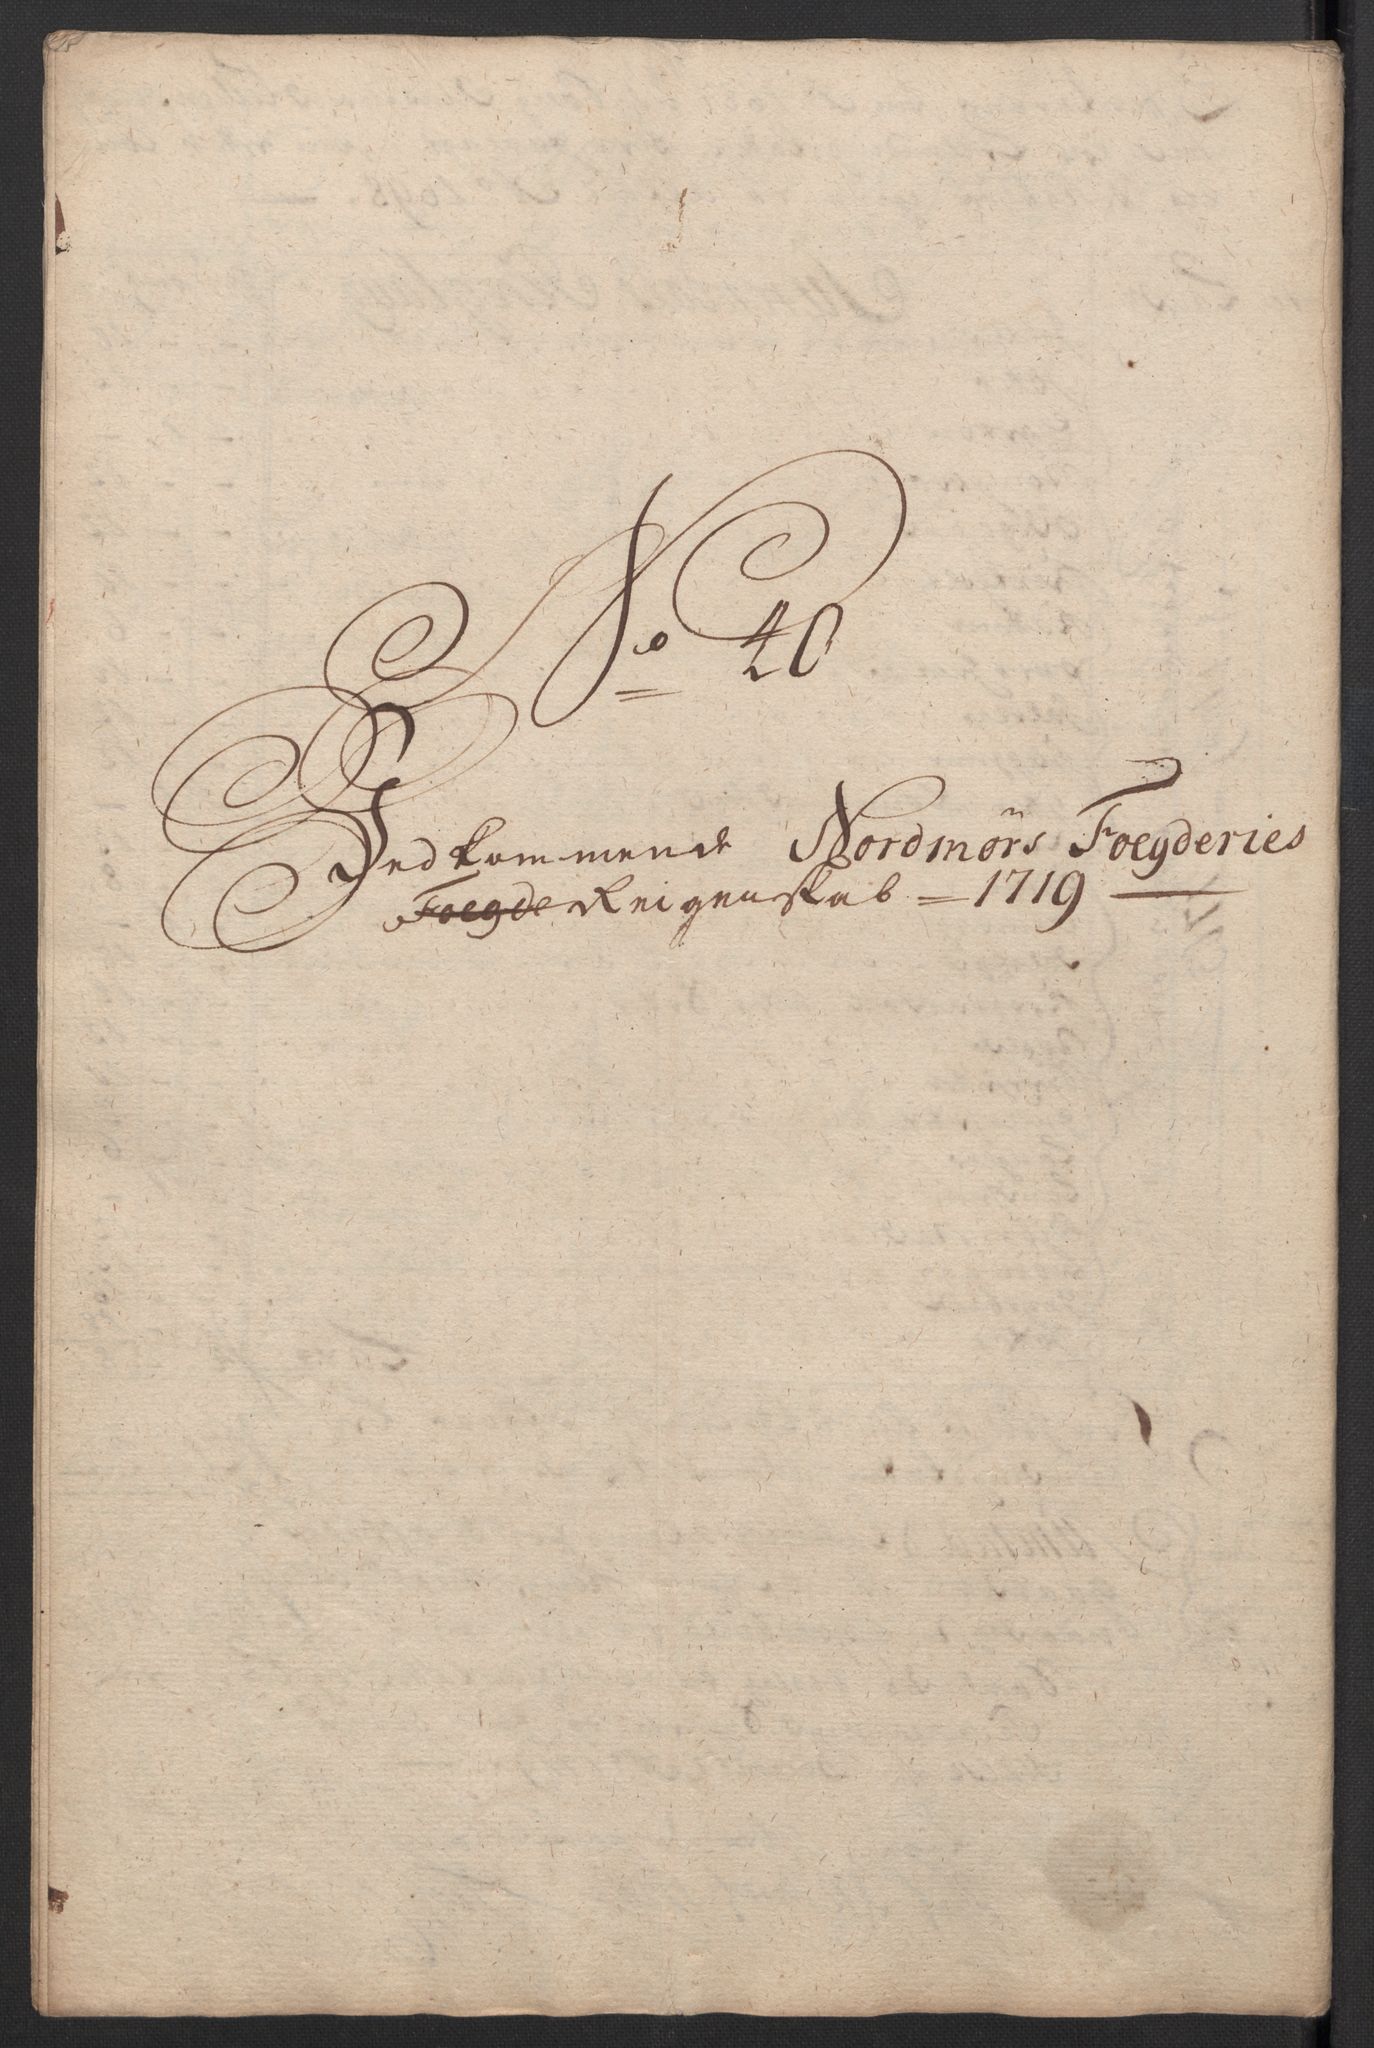 No 40
Vedkommende Nordmörs Foegderies
Foegde Reigenskab = 1719